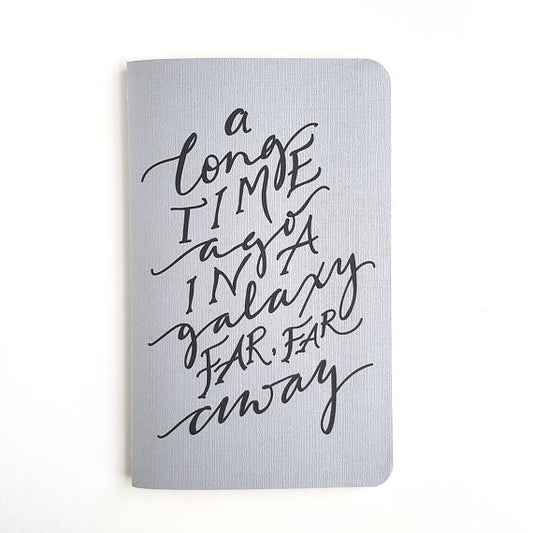 a
long
TIME
ago
IN A
galaxy
FAR, FAR
away